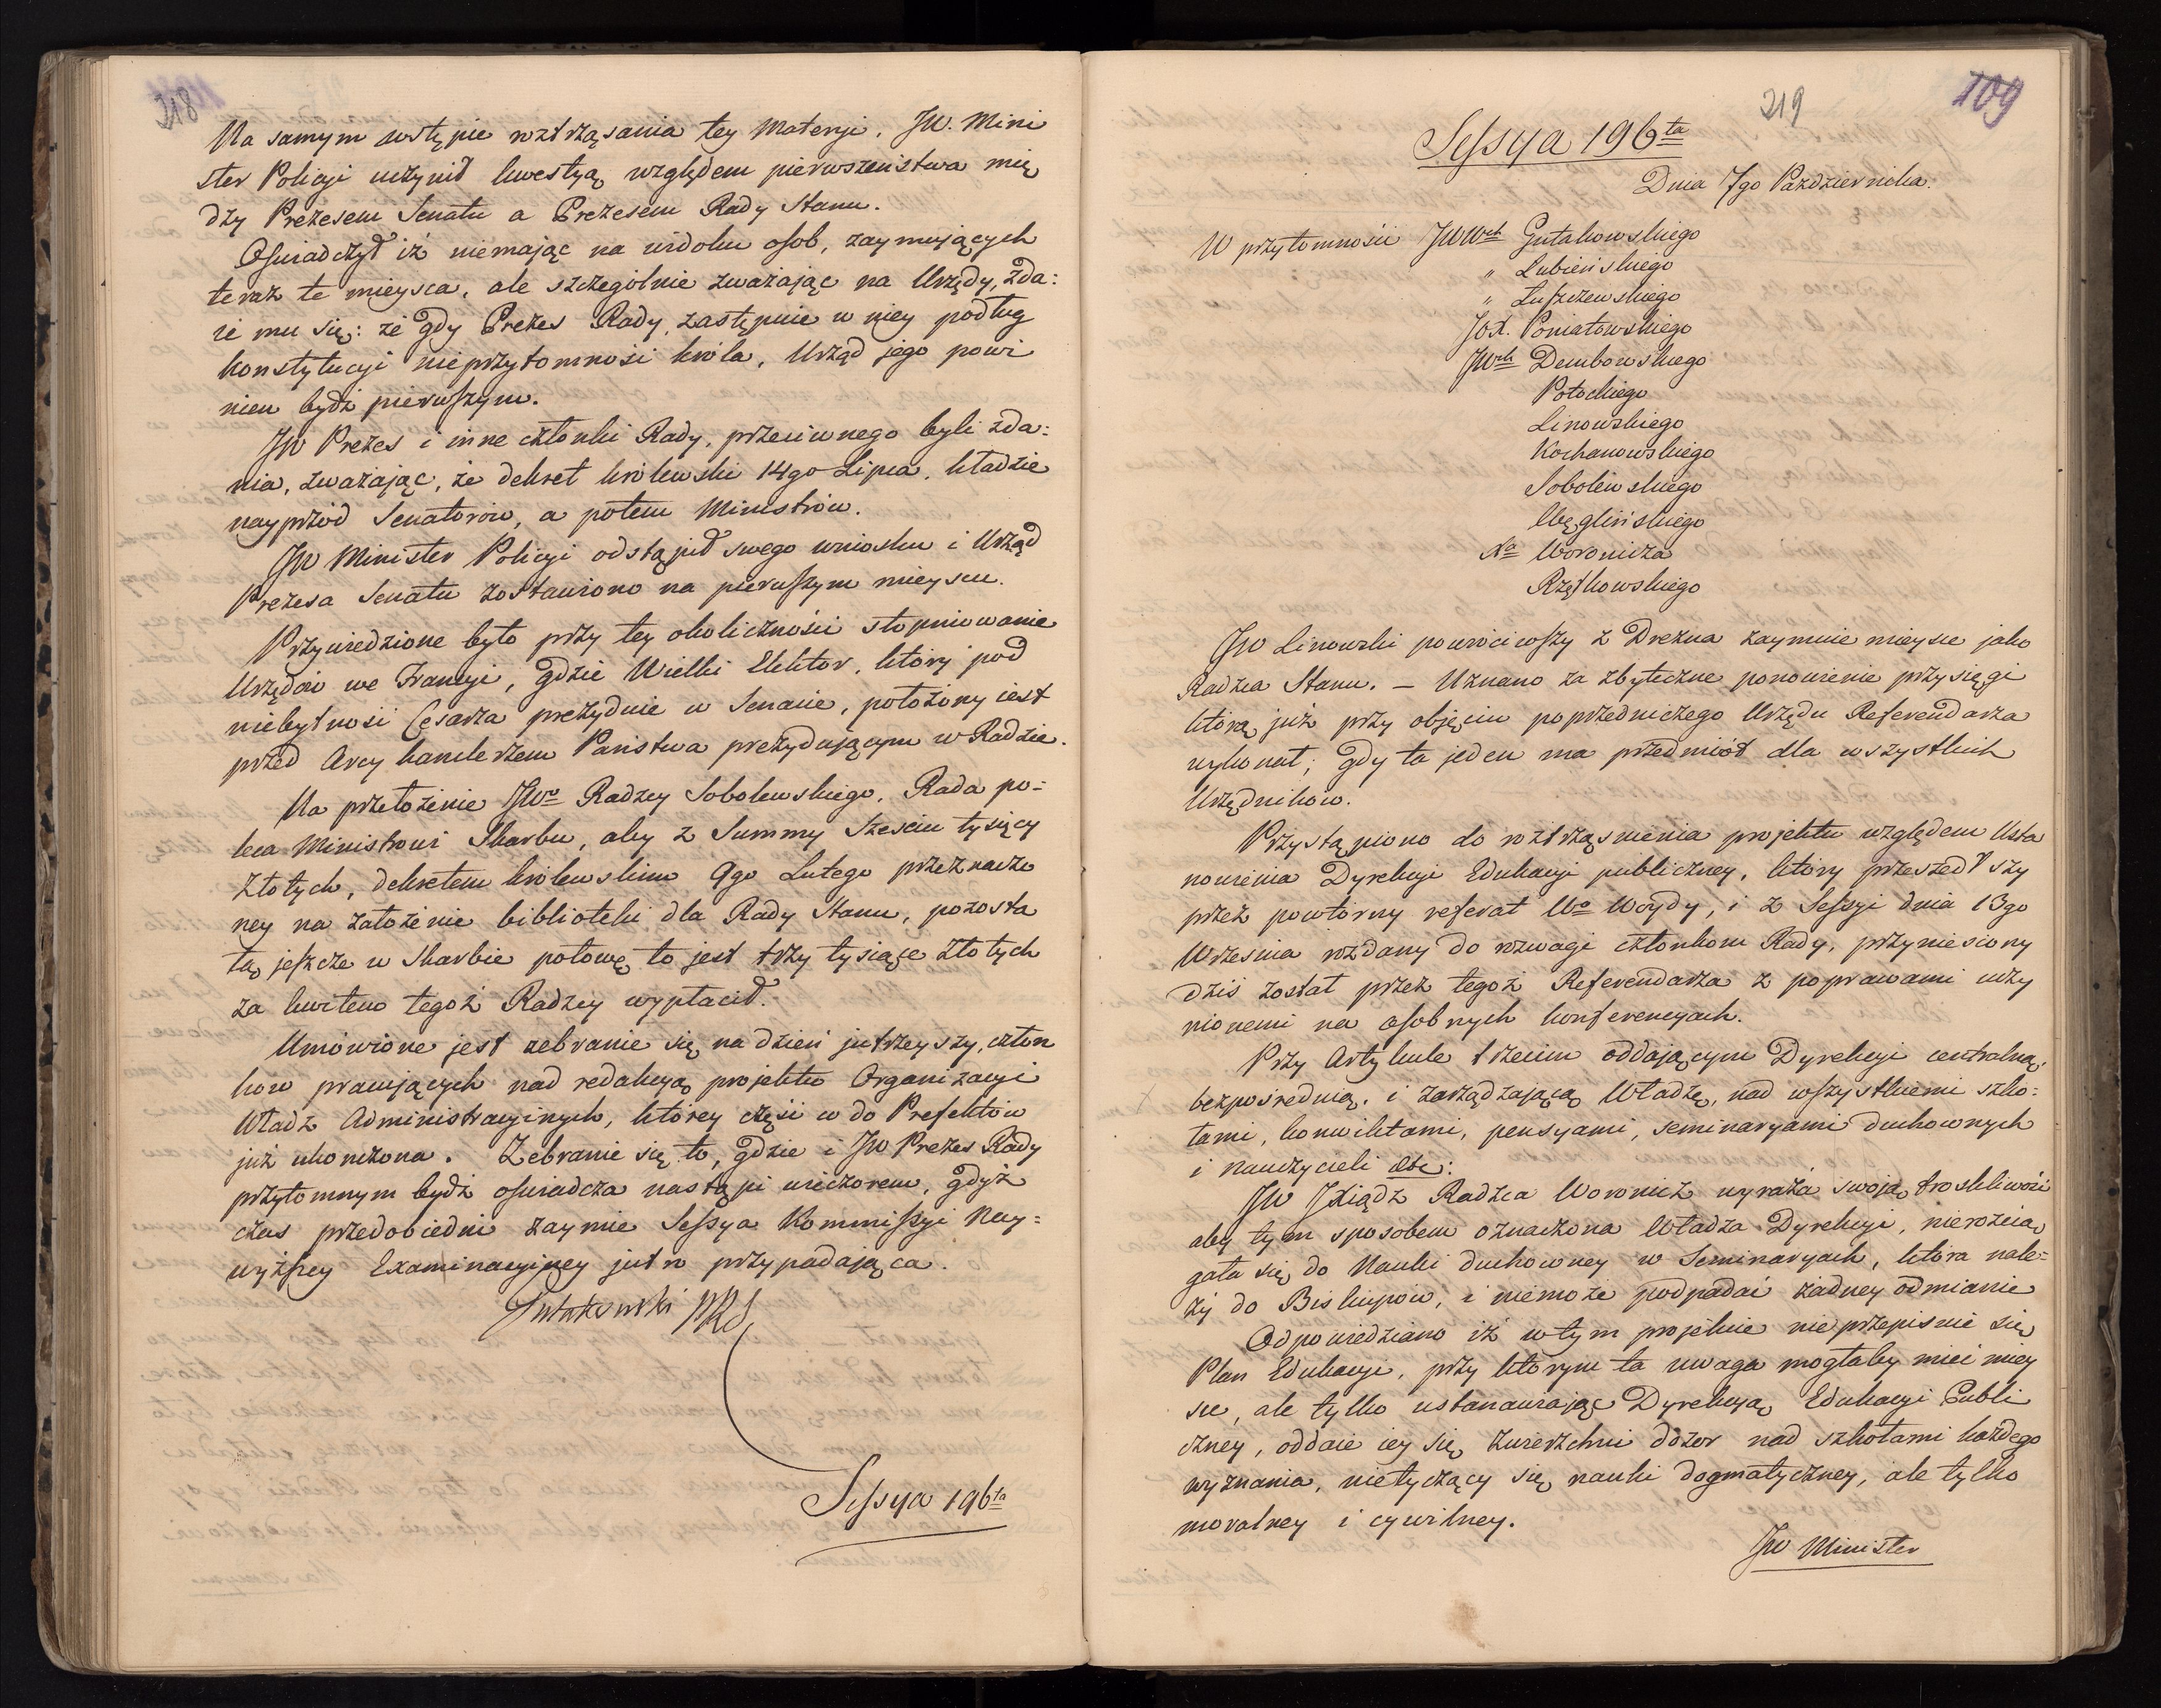 218
Na samym wstępie roztrząsania tey materyi, JW. Mini
ster Policyi uczynił kwestyą względem pierwszeństwa mię
dzy Prezesem Senatu a Prezesem Rady Stanu.
Oświadczył iż niemając na widoku osob, zaymujących
teraz te mieysca, ale szczególnie zważając na Urzędy, zda:
ie mu się: że gdy Prezes Rady, zastępuie w niey podług
konstytucyi nieprzytomność króla, Urząd jego powi
nien bydź pierwszym.
JW Prezes i inne członki Rady, przeciwnego byli zda:
nia, zważając, że dekret królewski 14go Lipca, kładzie
nayprzód Senatorów, a potem Ministrów.
JW Minister Policyi odstąpił swego wniosku i Urząd
Prezesa Senatu zostawiono na pierwszym mieyscu.
Przywiedzione było przy tey okoliczności stopniowanie
Urzędów we Francyi, gdzie Wielki Elektor, który pod
niebytność Cesarza prezyduie w Senacie, położony iest
przed Arcy kanclerzem Państwa prezydującym w Radzie.
Na przełożenie JWo Radzcy Sobolewskiego, Rada po=
leca Ministrowi Skarbu, aby z Summy Sześciu tysięcy
złotych, dekretem królewskim 9go Lutego przeznaczo
ney na założenie biblioteki dla Rady Stanu, pozosta
łą jeszcze w Skarbie połowę to jest trzy tysiące złotych
za kwitem tegoż Radzcy wypłacił.
Umówione jest zebranie się na dzień jutrzeyszy, człon
ków pracujących nad redakcyą projektu Organizacyi
Władz Administracyinych, którey część w do Prefektów
już ukończona. Zebranie się to, gdzie i JW Prezes Rady
przytomnym bydź oświadcza nastąpi wieczorem, gdyż
czas przedobiedni zaymie Sessya Kommissyi Nay=
wyższey Examinacyiney jutro przypadająca.
Gutakowski PRS
Sessya 196ta
219
109
Sessya 196ta
Dnia 7go Października.
W przytomności JWWch Gutakowskiego
" Lubieńskiego
" Łuszczewskiego
JOX. Poniatowskiego
JWch Dembowskiego
Potockiego
Linowskiego
Kochanowskiego
Sobolewskiego
Węglińskiego
Xa Woronicza
Rzętkowskiego
JW Linowski powróciwszy z Drezna zaymuie mieysce jako
Radzca Stanu. – Uznano za zbyteczne ponowienie przysięgi
którą już przy objęciu poprzedniczego Urzędu Referendarza
wykonał, gdy ta jeden ma przedmiót dla wszystkich
Urzędników.
Przystąpiono do roztrząśnienia projektu względem Usta
nowienia Dyrekcyi Edukacyi publiczney, który przeszedłszy
przez powtórny referat Wo Woydy, i z Sessyi dnia 13go
Września rozdany do rozwagi członkom Rady, przyniesiony
dziś został przez tegoż Referendarza z poprawami uczy
nionemi na osobnych konferencyach.
Przy Artykule trzecim oddającym Dyrekcyi centralną,
bezpośrednią, i zarządzającą Władzę, nad wszystkiemi szko:
łami, konwiktami, pensyami, seminaryami duchownych
i nauczycieli etc:
JW JXiądz Radzca Woronicz wyraża swoją troskliwość
aby tym sposobem oznaczona Władza Dyrekcyi, nierozcią
gała się do Nauki duchowney w Seminaryach, która nale=
ży do Biskupów, i niemoże podpadać żadney odmianie
Odpowiedziano iż w tym projekcie nieprzepisuie się
Plan Edukacyi, przy którym ta uwaga mogłaby mieć miey
sce, ale tylko ustanawiając Dyrekcyą Edukacyi Publi
czney, oddaie iey się zwierzchni dozor nad szkołami każdego
wyznania, nietyczący się nauki dogmatyczney, ale tylko
moralney i cywilney.
JW Minister